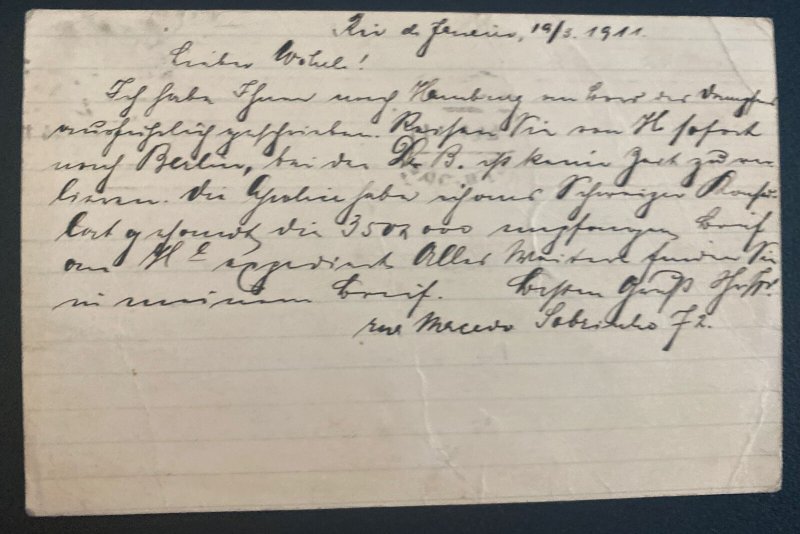 Rio de Janeiro, 19/3. 1911.
Lieber !
Ich habe Ihnen nach Hamburg an Bord des Dampfers
ausführlich geschrieben. Reisen Sie von H sofort
nach Berlin, bei der B. ist keine Zeit zu ver-
lieren. Die habe ich ans Schweizer Konsu-
lat gesandt, die 350 000 empfangen, Brief
an expediert. Alles Weitere finden Sie
in meinem Brief. Besten Gruß
rua Macedo Sobrinho 72.